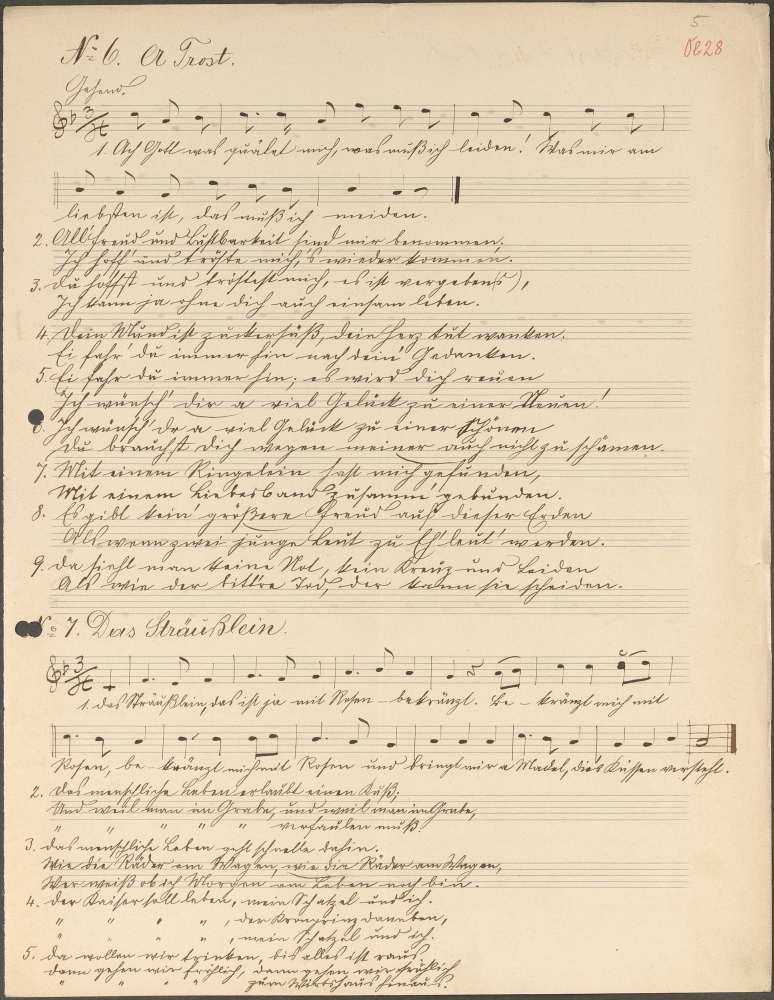 5
DC28
No 6. A Trost.
Gehend.
3/4
1. Ach Gott was quälet mich, was muß ich leiden! Was mir am
liebsten ist, das muß ich meiden.
2. All' freud und Lustbarkeit sind mir benommen,
Ich hoff' und tröste mich, 's wieder kommen.
3. Du hoffst und tröstest mich, es ist vergeben(s),
Ich kann ja ohne dich auch einsam leben.
4. Dein Mund ist zuckersüß, dein Herz tut wanken.
Ei fahr du immer hin nach dein' Gedanken.
5. Ei fahr du immer hin; es wird dich reuen
Ich wünsch' dir a viel Gelück zu einer Neuen!
6. Ich wünsch' dr a viel Gelück zu einer Schönen
Du brauchst dich wegen meiner auch nicht zu schämen.
7. Mit einem Ringelein hast mich gefunden,
Mit einem Liebesband zusamm' gebunden.
8. Es gibt kein' größere Freud auf dieser Erden
Als wenn zwei junge Leut' zu Eh'leut' werden.
9. Da sieht man keine Not, kein Kreuz und Leiden
Als wie der bittre Tod, der kann sie scheiden.
No 7. Das Sträußlein.
3/4
1. Das Sträußlein, das ist ja mit Rosen – bekränzt. Be – kränzt mich mit
Rosen, be – kränzt mich mit Rosen und bringt mir a Madel, die's Küssen versteht.
2. Das menschliche Leben erlaubt einen Kuß;
Und weil man im Grabe, und weil man im Grabe,
" " " " " verfaulen muß.
3. Das menschliche Leben geht schnelle dahin.
Wie die Räder am Wagen, wie die Räder am Wagen,
Wer weiß ob ich Morgen am Leben noch bin.
4. Der Kaiser soll leben, mein Schatzel und ich.
" " " " , der Kronprinz daneben,
" " " " , mein Schatzel und ich.
5. Da wollen wir trinken, bis alles ist raus,
dann gehen wir fröhlich, dann gehen wir fröhlich
" " " " zum Wirtshaus hinaus.